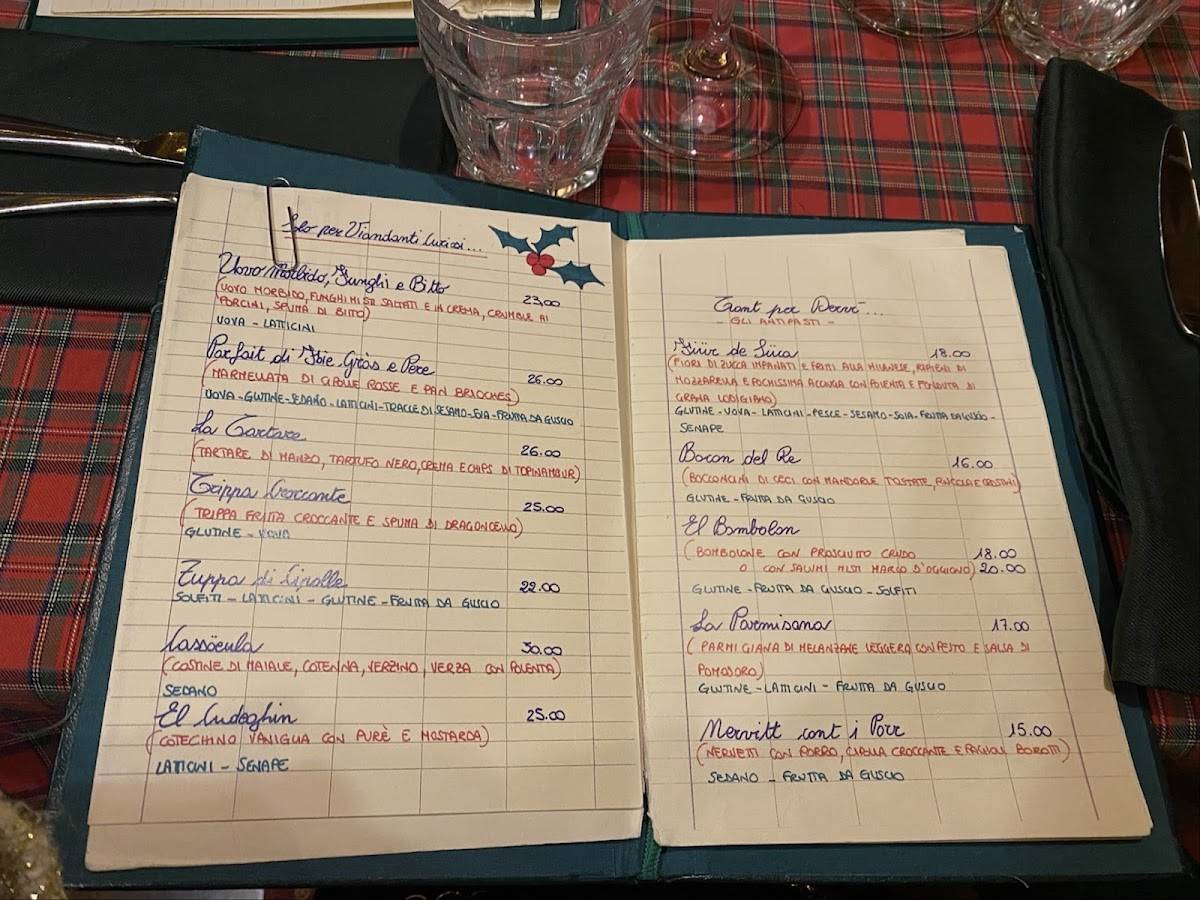 Solo per Viandanti Curiosi...
Uovo Morbido, Funghi e Bitto 23,00
(UOVO MORBIDO, FUNGHI MISTI SALTATI E IN CREMA, CRUMBLE AI
PORCINI, SPUMA DI BITTO)
UOVA - LATTICINI
Parfait di Foie Gràs e Pere 26.00
(MARMELLATA DI CIPOLLE ROSSE E PAN BRIOCHES)
UOVA - GLUTINE - SEDANO - LATTICINI - TRACCE DI SESAMO - SOIA - FRUTTA DA GUSCIO
La Tartare 26.00
(TARTARE DI MANZO, TARTUFO NERO, CREMA E CHIPS DI TOPINAMBUR)
Trippa Croccante 25.00
(TRIPPA FRITTA CROCCANTE E SPUMA DI DRAGONCELLO)
GLUTINE - UOVA
Zuppa di Cipolle 22.00
SOLFITI - LATTICINI - GLUTINE - FRUTTA DA GUSCIO
Cassöeula 30.00
(COSTINE DI MAIALE, COTENNA, VERZINO, VERZA CON POLENTA)
SEDANO
El Cudeghin 25.00
(COTECHINO VANIGLIA CON PURÈ E MOSTARDA)
LATTICINI - SENAPE
Tant per Dervì...
- GLI ANTIPASTI -
Fiüür de Süca 18.00
(FIORI DI ZUCCA IMPANATI E FRITTI ALLA MILANESE, RIPIENI DI
MOZZARELLA E POCHISSIMA ACCIUGA CON POLENTA E FONDUTA DI
GRANA LODIGIANO)
GLUTINE - UOVA - LATTICINI - PESCE - SESAMO - SOIA - FRUTTA DA GUSCIO -
SENAPE
Bocon del Re 16.00
(BOCCONCINI DI CECI CON MANDORLE TOSTATE, RUCOLA E CROSTINI)
GLUTINE - FRUTTA DA GUSCIO
El Bombolon
(BOMBOLONE CON PROSCIUTTO CRUDO 18.00
O CON SALUMI MISTI MARCO D'OGGIONO) 20.00
GLUTINE - FRUTTA DA GUSCIO - SOLFITI
La Parmisana 17.00
(PARMIGIANA DI MELANZANE LEGGERA, CON PESTO E SALSA DI
POMODORO)
GLUTINE - LATTICINI - FRUTTA DA GUSCIO
Nervitt cont i Porr 15.00
(NERVETTI CON PORRO, CIPOLLA CROCCANTE E FAGIOLI BORLOTTI)
SEDANO - FRUTTA DA GUSCIO